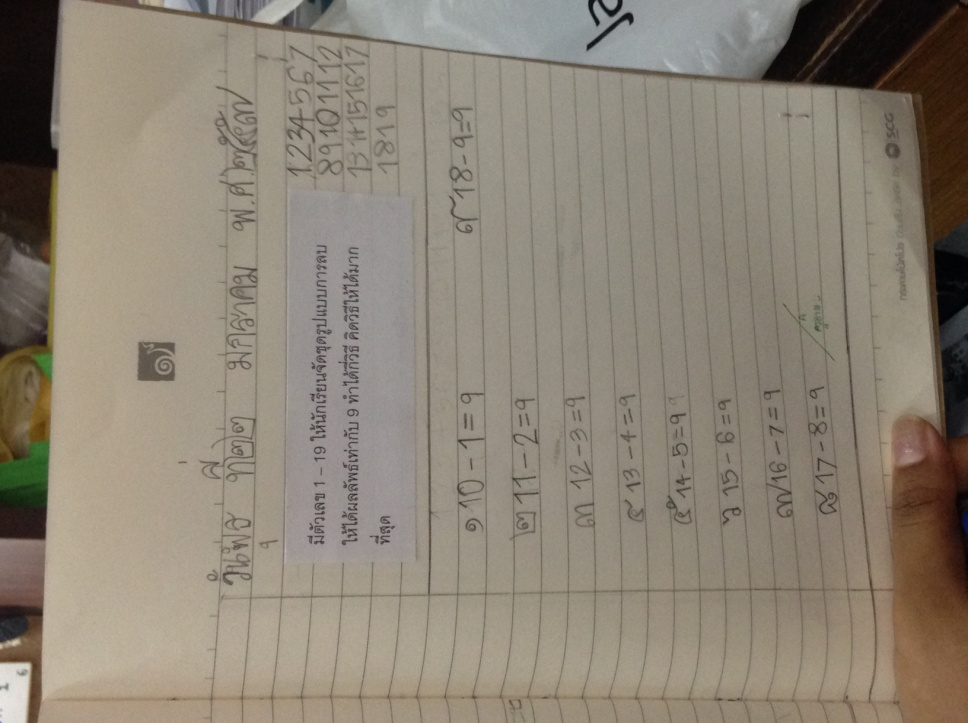 ๑
วันพุธ ที่ ๒๒ มกราคม พ.ศ. ๒๕๕๗
มีตัวเลข 1 – 19 ให้นักเรียนจัดชุดรูปแบบการลบ
ให้ได้ผลลัพธ์เท่ากับ 9 ทำได้กี่วิธี คิดวิธีให้ได้มาก
ที่สุด
1 2 3 4 5 6 7
8 9 10 11 12
13 14 15 16 17
18 19
๑ 10 - 1 = 9
๒ 11 - 2 = 9
๓ 12 - 3 = 9
๔ 13 - 4 = 9
๕ 14 - 5 = 9 9
๖ 15 - 6 = 9
๗ 16 - 7 = 9
๘ 17 - 8 = 9
๙ 18 - 9 = 9
SCG